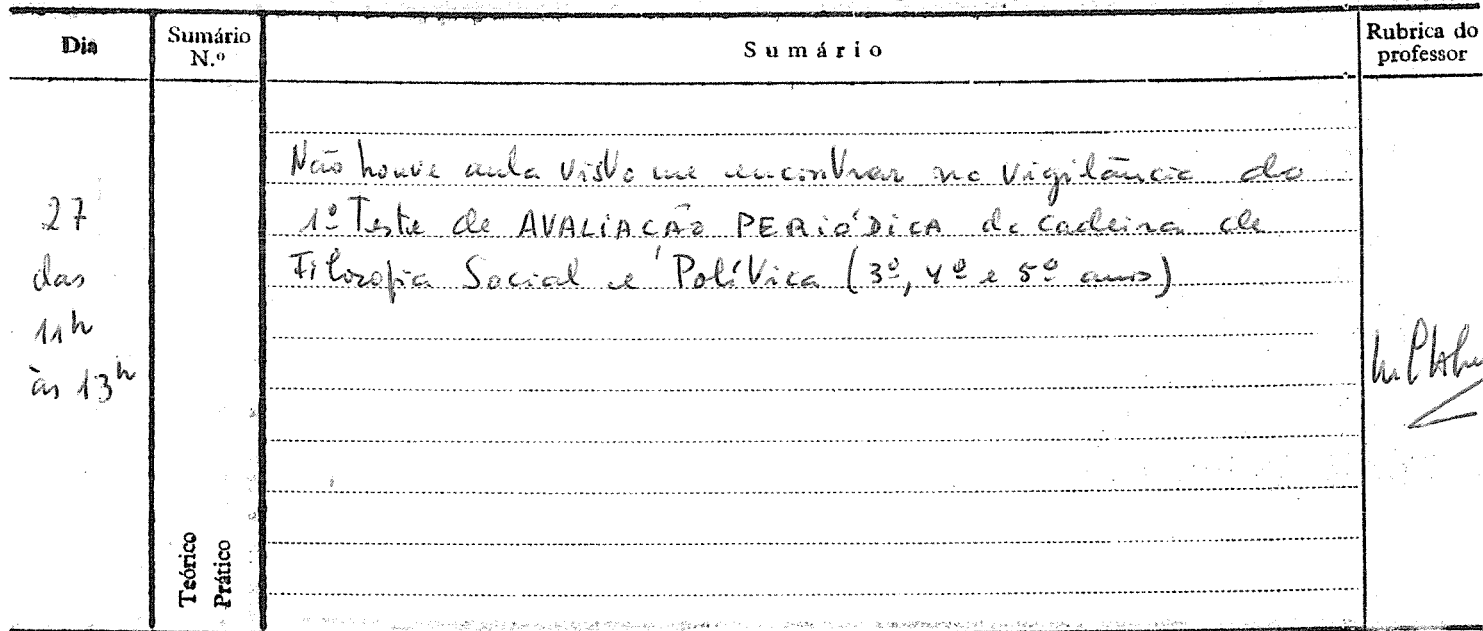 Dia
Sumário N.º
Sumário
Rubrica do professor
27
das
11h
às 13h
Não houve aula visto me encontrar na vigilância do
1º Teste de AVALIAÇÃO PERIÓDICA da cadeira de
Filosofia Social e Política (3º, 4º e 5º anos)
Teórico
Prático